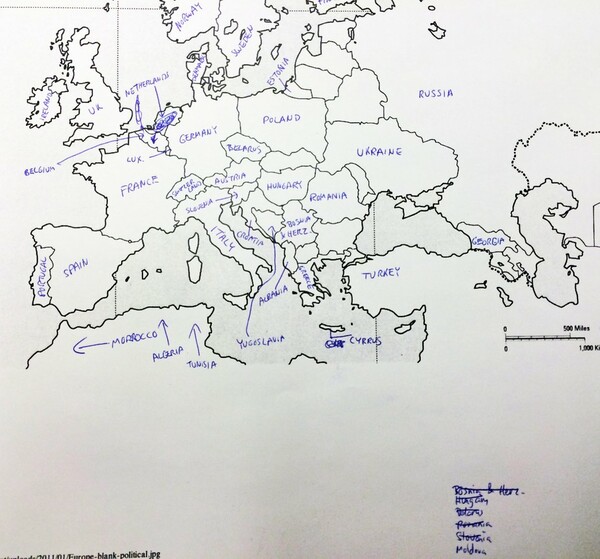 NORWAY
SWEDEN
DENMARK
ESTONIA
NETHERLANDS
IRELAND
UK
RUSSIA
POLAND
GERMANY
BELARUS
UKRAINE
BELGIUM
LUX.
FRANCE
SWITZER
LAND
AUSTRIA
HUNGARY
ROMANIA
SLOVENIA
CROATIA
BOSNIA
& HERZ
ITALY
GEORGIA
PORTUGAL
SPAIN
GREECE
ALBANIA
TURKEY
YUGOSLAVIA
CYRRUS
MORROCCO
ALGERIA
TUNISIA
0 500 Miles
0 1,000 Ki
Bosnia & Herz.
Hungary
Belarus
Romania
Slovenia
Moldova
/2011/01/Europe-blank-political.jpg